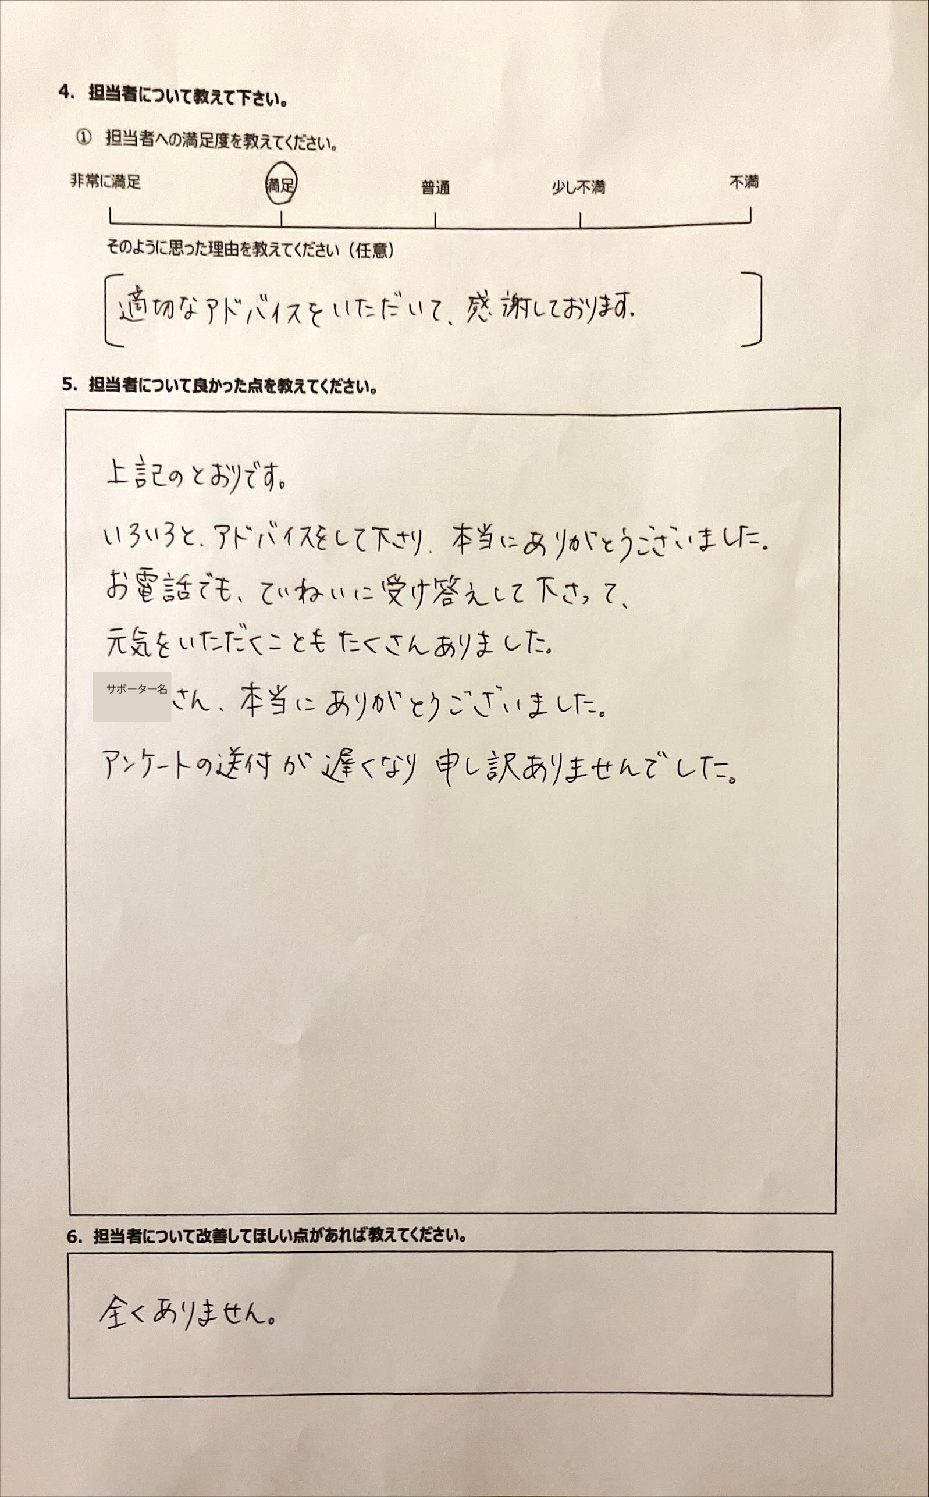 4. 担当者について教えて下さい。
① 担当者への満足度を教えてください。
非常に満足 満足 普通 少し不満 不満
そのように思った理由を教えてください（任意）
適切なアドバイスをいただいて、感謝しております。
5. 担当者について良かった点を教えてください。
上記のとおりです。
いろいろと、アドバイスをして下さり、本当にありがとうございました。
お電話でも、ていねいに受け答えして下さって、
元気をいただくこともたくさんありました。
サポーター名さん、本当にありがとうございました。
アンケートの送付が遅くなり申し訳ありませんでした。
6. 担当者について改善してほしい点があれば教えてください。
全くありません。